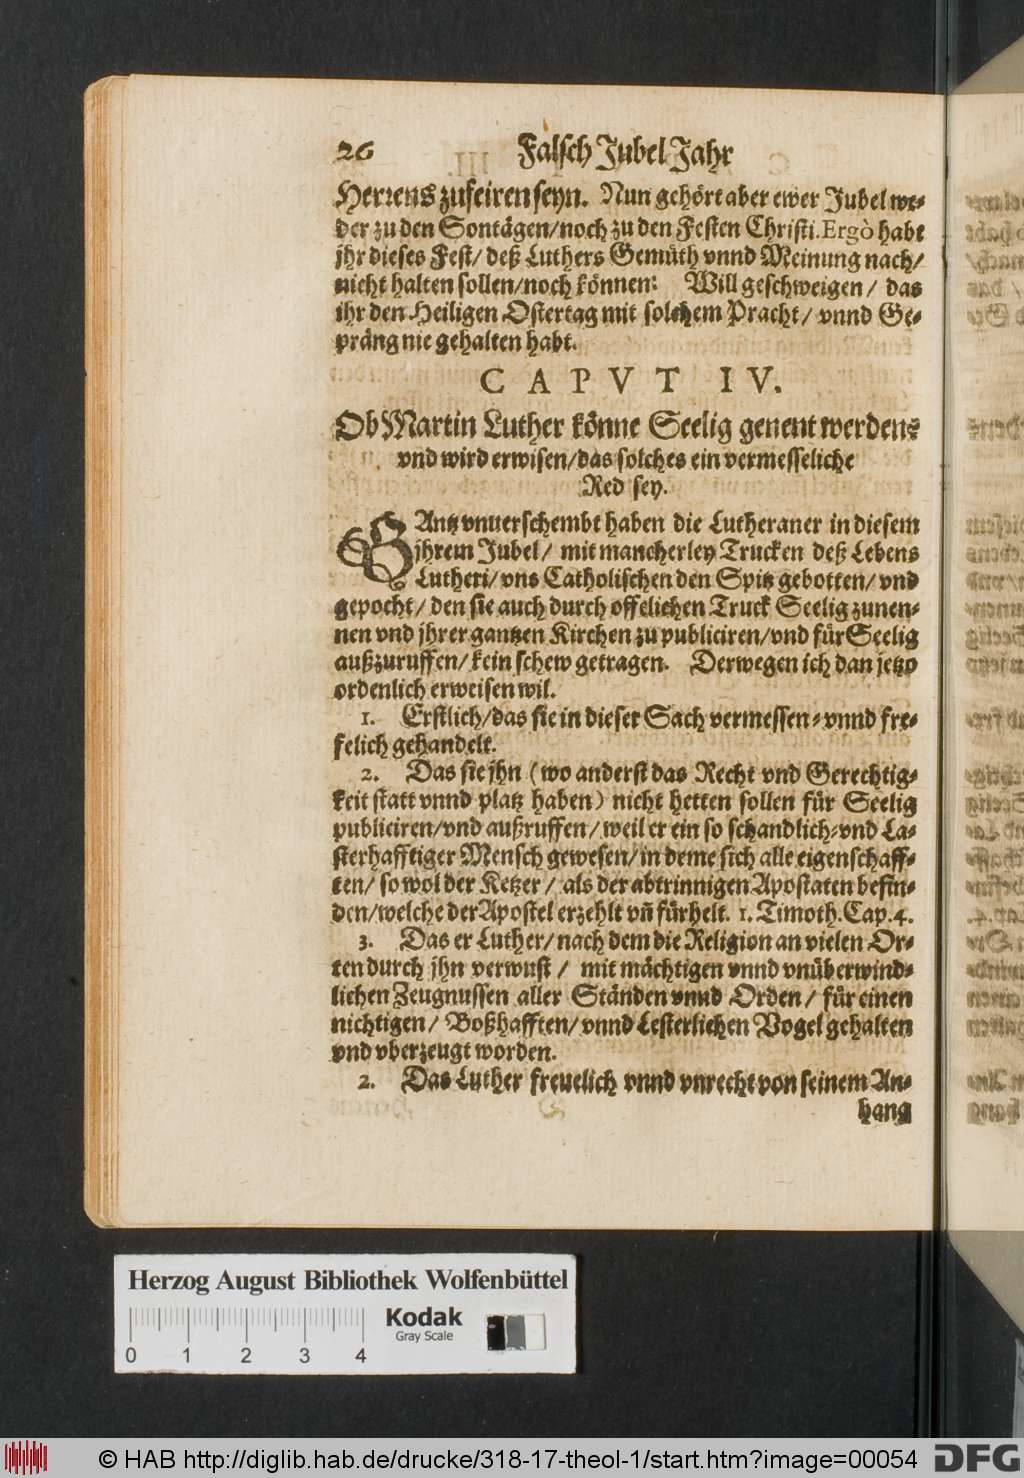 26 Falsch Jubel Jahr
Herrens zufeiren seyn. Nun gehört aber ewer Jubel we-
der zu den Sontägen/noch zu den Festen Christi. Ergò habt
jhr dieses Fest/ deß Luthers Gemüth vnnd Meinung nach/
nicht halten sollen/noch können: Will geschweigen / das
ihr den Heiligen Ostertag mit solchem Pracht/ vnnd Ge-
präng nie gehalten habt.
CAPVT IV.
Ob Martin Luther könne Seelig genent werden:
vnd wird erwisen/das solches ein vermesseliche
Red sey.
GAntz vnuerschembt haben die Lutheraner in diesem
jhrem Jubel/ mit mancherley Trucken deß Lebens
Lutheri/ vns Catholischen den Spitz gebotten/ vnd
gepocht/ den sie auch durch offelichen Truck Seelig zunen-
nen vnd jhrer gantzen Kirchen zu publiciren/vnd für Seelig
außzuruffen/kein schew getragen. Derwegen ich dan jetzo
ordenlich erweisen wil.
1. Erstlich/das sie in dieser Sach vermessen- vnnd fre-
felich gehandelt.
2. Das sie jhn (wo anderst das Recht vnd Gerechtig-
keit statt vnnd platz haben) nicht hetten sollen für Seelig
publiciren/vnd außruffen/ weil er ein so schandlich-vnd La-
sterhafftiger Mensch gewesen/in deme sich alle eigenschaff-
ten/ so wol der Ketzer / als der abtrinnigen Apostaten befin-
den/welche der Apostel erzehlt vñ fürhelt. 1. Timoth. Cap. 4.
3. Das er Luther/ nach dem die Religion an vielen Or-
ten durch jhn verwust / mit mächtigen vnnd vnüberwind-
lichen Zeugnussen aller Ständen vnnd Orden/ für einen
nichtigen/ Boßhafften/ vnnd Lesterlichen Vogel gehalten
vnd vberzeugt worden.
2. Das Luther freuelich vnnd vnrecht von seinem An-
hang
Herzog August Bibliothek Wolfenbüttel
Kodak
Gray Scale
0 1 2 3 4
© HAB http://diglib.hab.de/drucke/318-17-theol-1/start.htm?image=00054
DFG